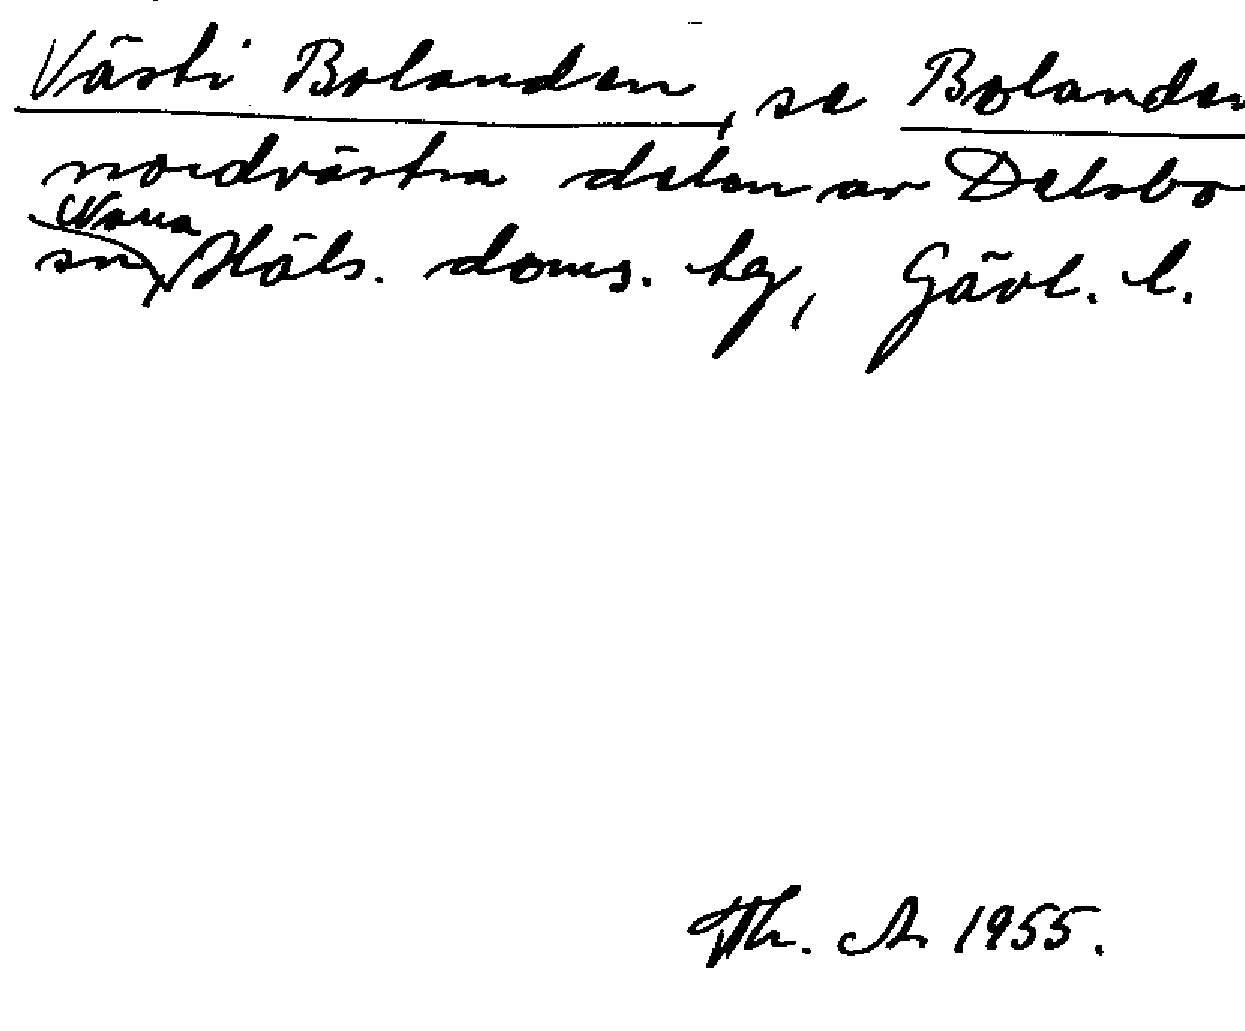 Västi Bolanden, se Bolanden
nordvästra delen av Delsbo
sn, Norra Häls. doms. hg, Gävl. l.
Th. A 1955.